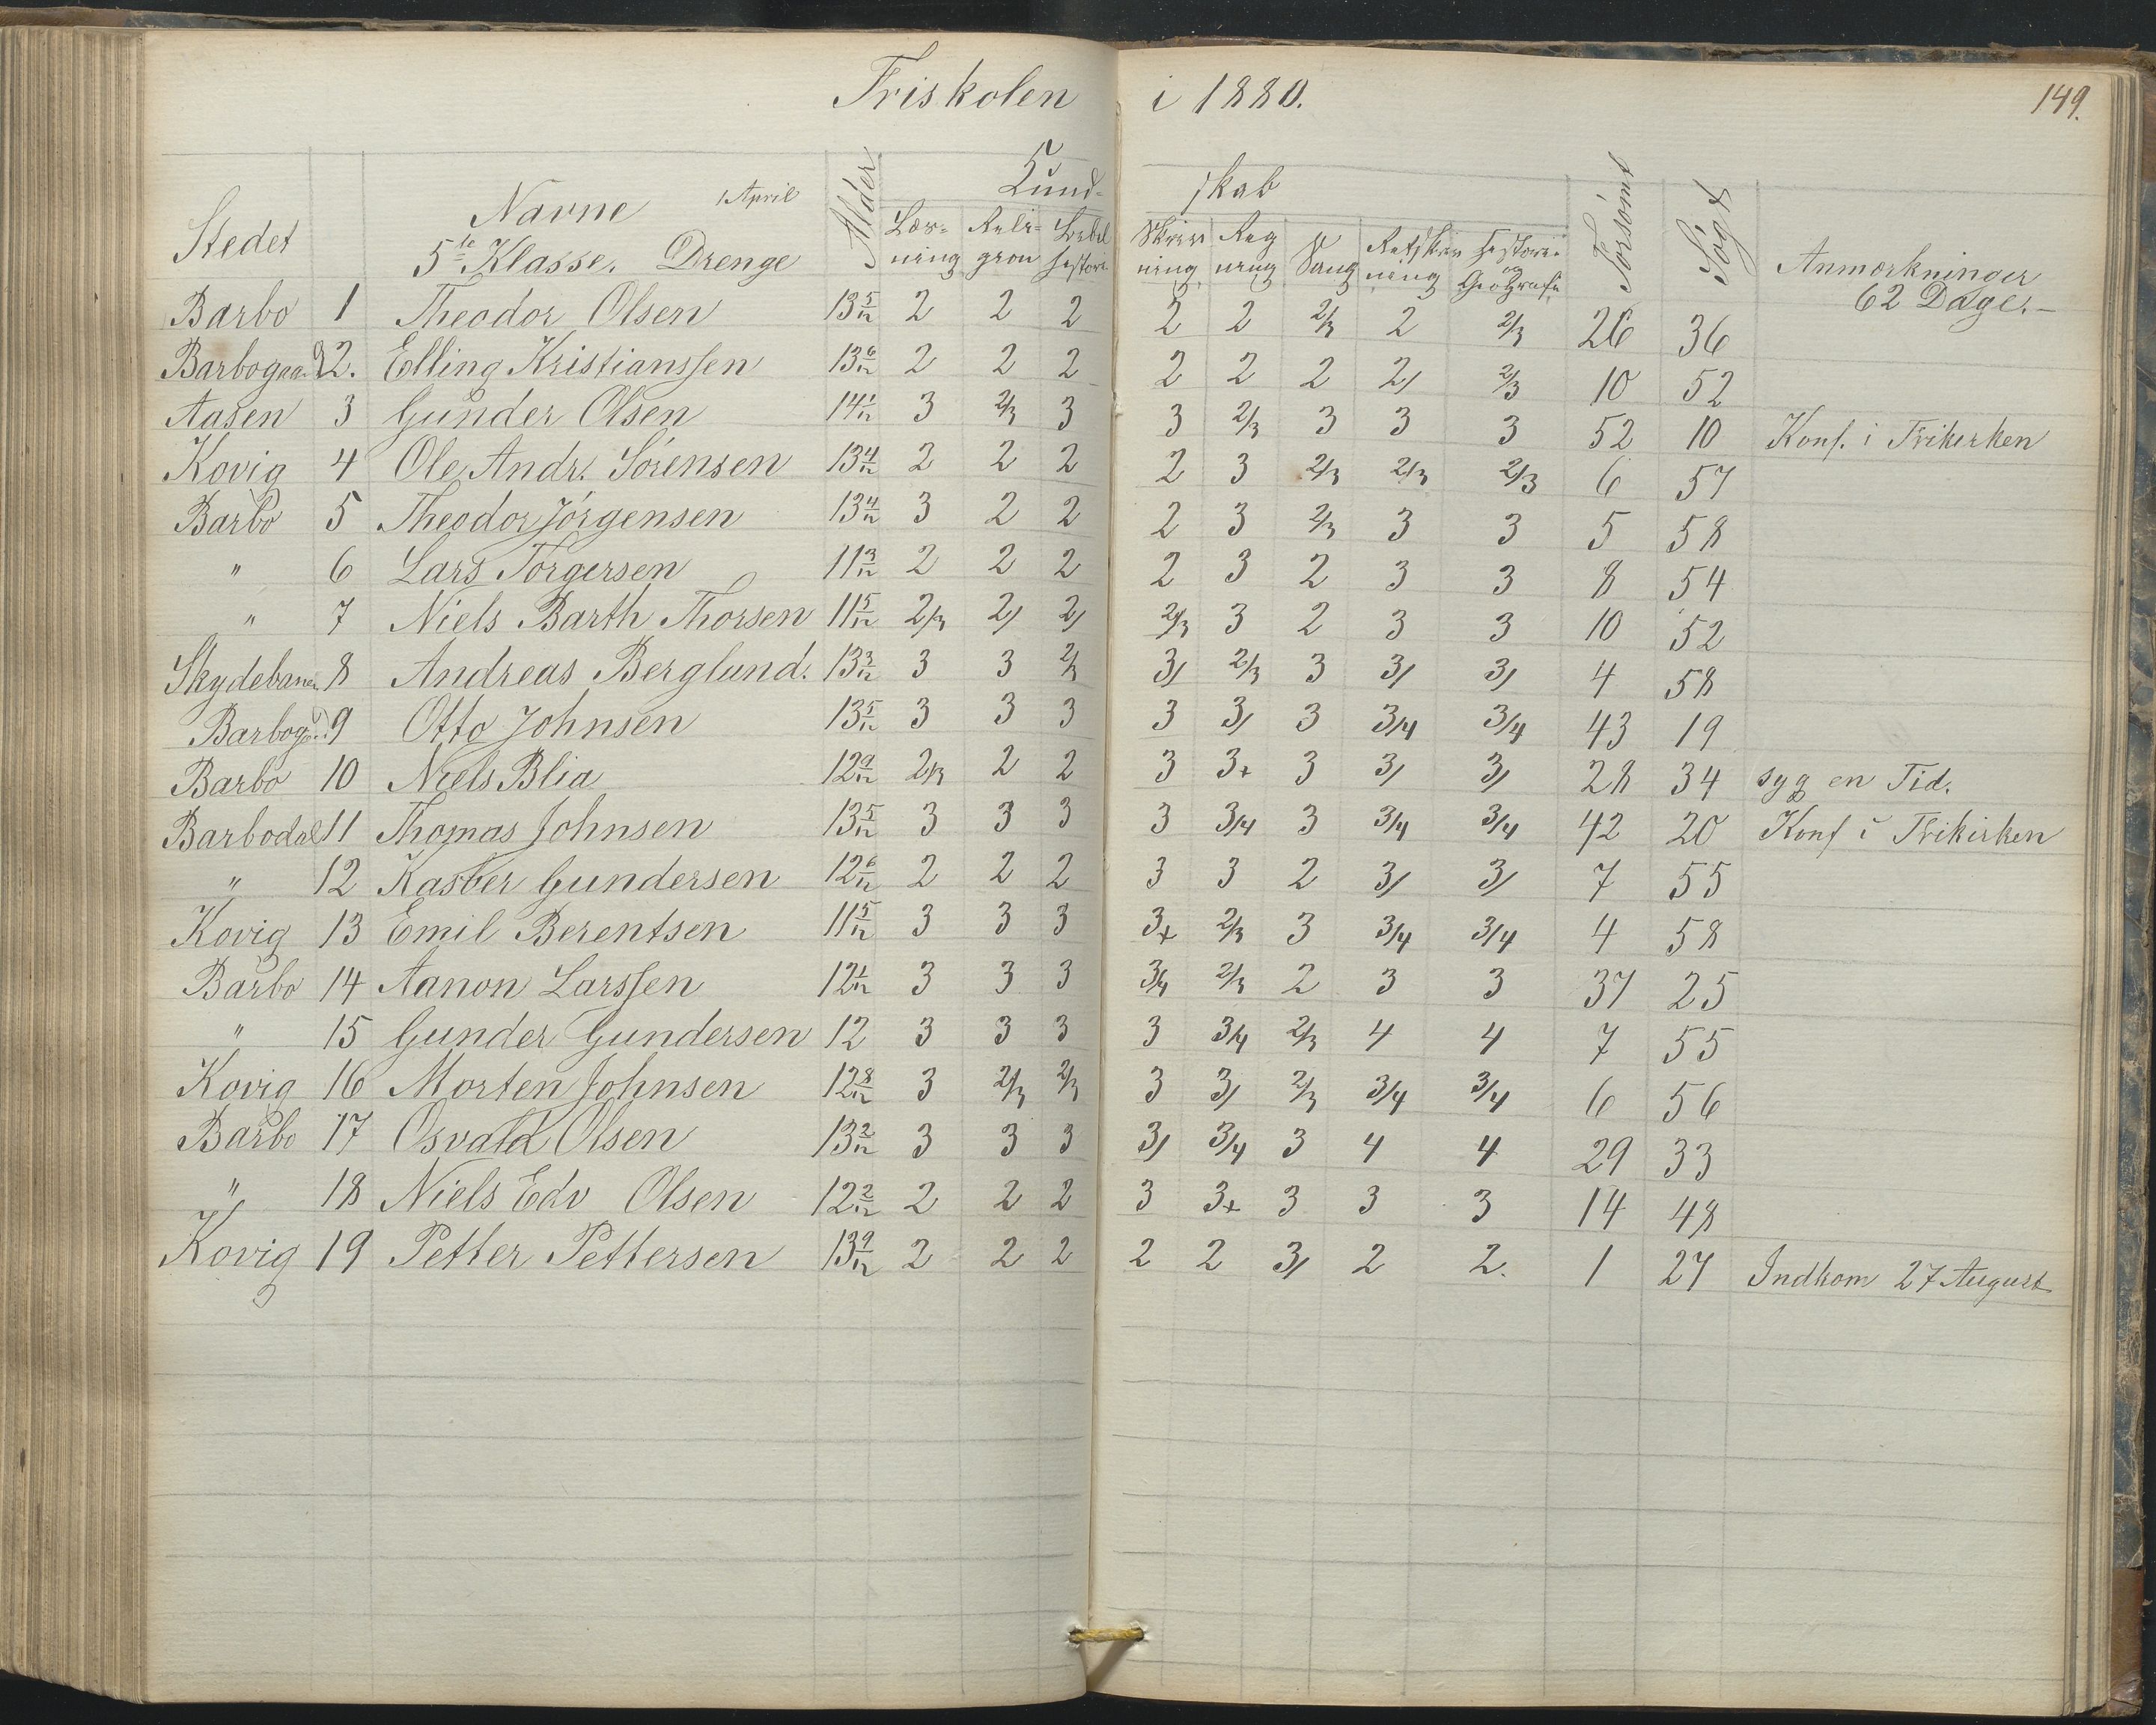 Friskolen i 1880. 149.
Stedet Navne 1 April Alder Kund- skab Forsømt Søgt Anmærkninger
5te Klasse. Drenge Læs- ning Reli- gion Bibel historie Skriv ning Reg ning Sang Retskriv ning Historie og Geografi 62 Dage.-
Barbo 1 Theodor Olsen 13 5/12 2 2 2 2 2 2/3 2 2/3 26 36
Barbogaard 2. Elling Kristianssen 13 6/12 2 2 2 2 2 2 2/ 2/3 10 52
Aasen 3 Gunder Olsen 14 1/12 3 2/3 3 3 2/3 3 3 3 52 10 Konf. i Frikirken
Kovig 4 Ole Andr. Sörensen 13 4/12 2 2 2 2 3 2/3 2/3 2/3 6 57
Barbo 5 Theodor Jörgensen 13 4/12 3 2 2 2 3 2/3 3 3 5 58
" 6 Lars Torgersen 11 3/12 2 2 2 2 3 2 3 3 8 54
" 7 Niels Barth Thorsen 11 5/12 2/3 2/ 2/ 2/3 3 2 3 3 10 52
Skydebanen 8 Andreas Berglund. 13 3/12 3 3 2/3 3/ 2/3 3 3/ 3/ 4 58
Barbogd. 9 Otto Johnsen 13 5/12 3 3 3 3 3/ 3 3/4 3/4 43 19
Barbo 10 Niels Blia 12 9/12 2/3 2 2 3 3+ 3 3/ 3/ 28 34 syg en Tid.
Barbodal 11 Thomas Johnsen 13 5/12 3 3 3 3 3/4 3 3/4 3/4 42 20 Konf i Frikirken
" 12 Kasber Gundersen 12 6/12 2 2 2 3 3 2 3/ 3/ 7 55
Kovig 13 Emil Berentsen 11 5/12 3 3 3 3+ 2/3 3 3/4 3/4 4 58
Barbo 14 Aanon Larssen 12 1/12 3 3 3 3/4 2/3 2 3 3 37 25
" 15 Gunder Gundersen 12 3 3 3 3 3/4 2/3 4 4 7 55
Kovig 16 Morten Johnsen 12 8/12 3 2/3 2/3 3 3/ 2/3 3/4 3/4 6 56
Barbo 17 Osvald Olsen 13 2/12 3 3 3 3/ 3/4 3 4 4 29 33
" 18 Niels Edv Olsen 12 2/12 2 2 2 3 3+ 3 3 3 14 48
Kovig 19 Petter Pettersen 13 9/12 2 2 2 2 2 3/ 2 2. 1 27 Indkom 27 August